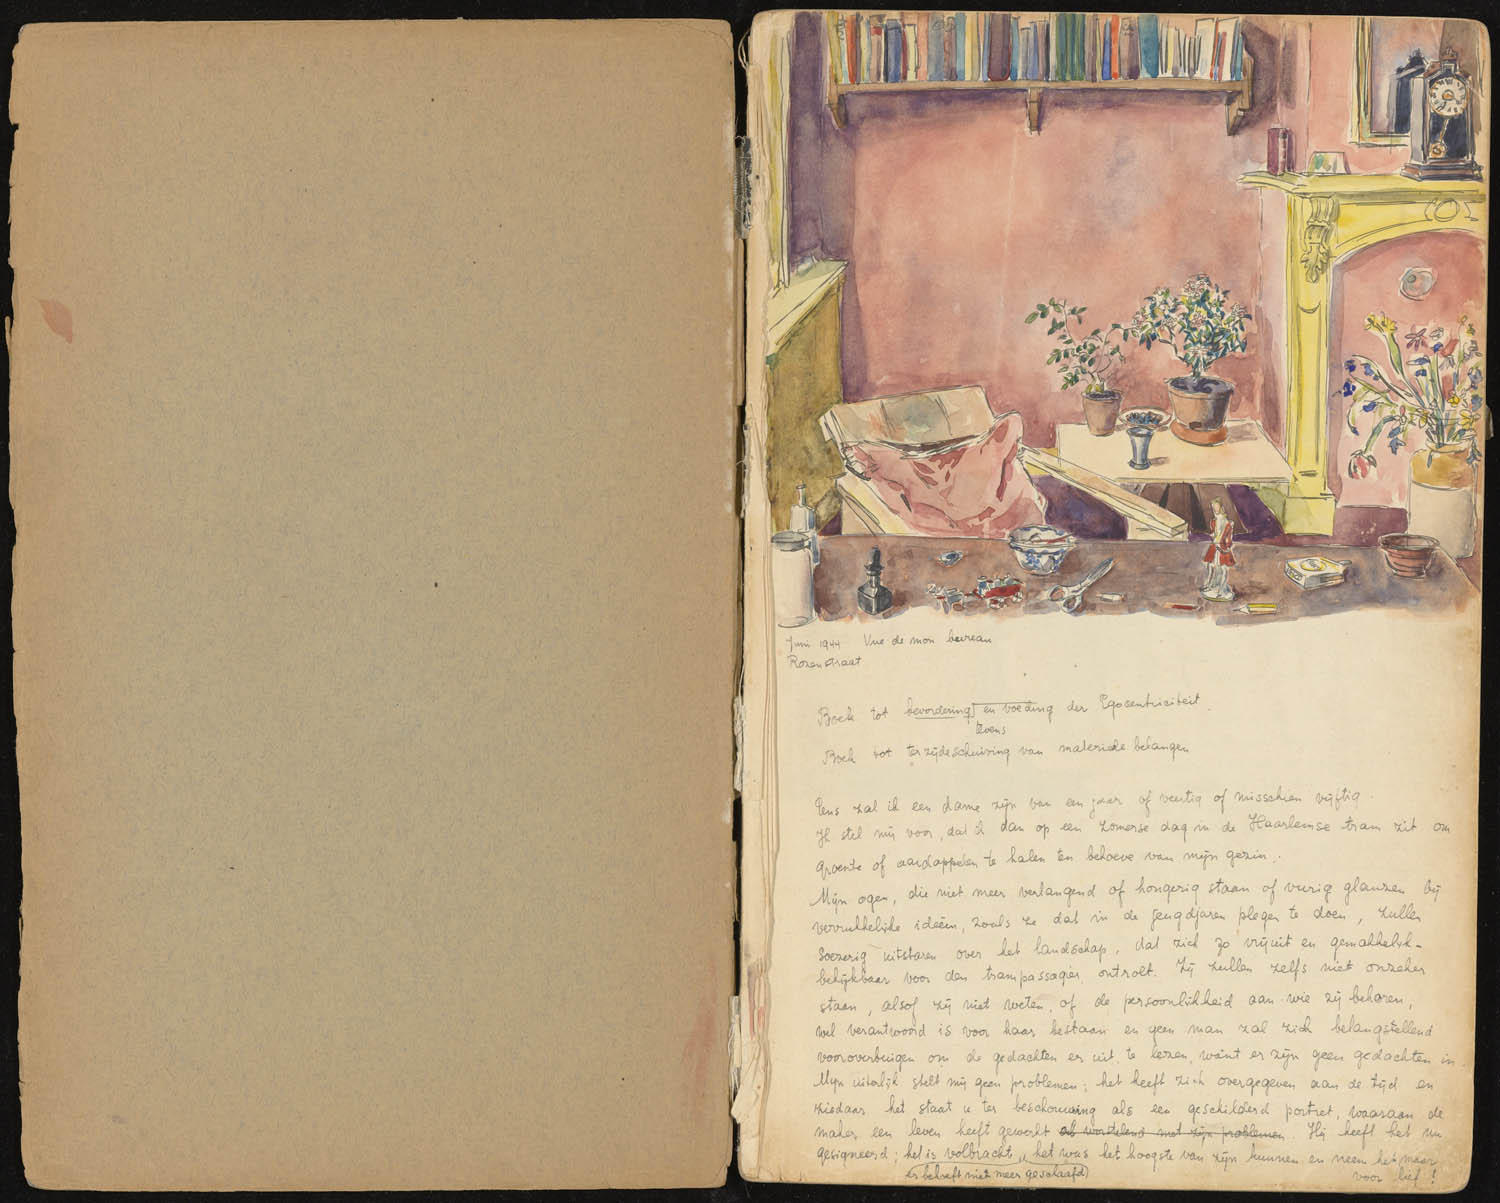 Juni 1944 Vue de mon bureau
Rozenstraat
Boek tot bevordering en voeding der Egocentriciteit.
tevens
Boek tot terzijdeschuiving van materiele belangen
Eens zal ik een dame zijn van een jaar of veertig of misschien vijftig.
Ik stel mij voor, dat ik dan op een zomerse dag in de Haarlemse tram zit om
groente of aardappelen te halen ten behoeve van mijn gezin.
Mijn ogen, die niet meer verlangend of hongerig staan of vurig glanzen bij
verrukkelijke ideeën, zoals ze dat in de jeugdjaren plegen te doen, zullen
soezerig uitstaren over het landschap, dat zich zo vrijuit en gemakkelijk-
bekijkbaar voor den trampassagier ontrolt. Zij zullen zelfs niet onzeker
staan, alsof zij niet weten, of de persoonlijkheid aan wie zij behoren,
wel verantwoord is voor haar bestaan en geen man zal zich belangstellend
vooroverbuigen om de gedachten er uit te lezen, want er zijn geen gedachten in
Mijn uiterlijk stelt mij geen problemen; het heeft zich overgegeven aan de tijd en
ziedaar het staat u ter beschouwing als een geschilderd portret, waaraan de
maker een leven heeft gewerkt als worstelend met zijn problemen. Hij heeft het nu
gesigneerd; het is volbracht, het was het hoogste van zijn kunnen en neem het maar
er behoeft niet meer geschaafd) voor lief!